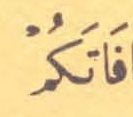 فَاتَكُمْ